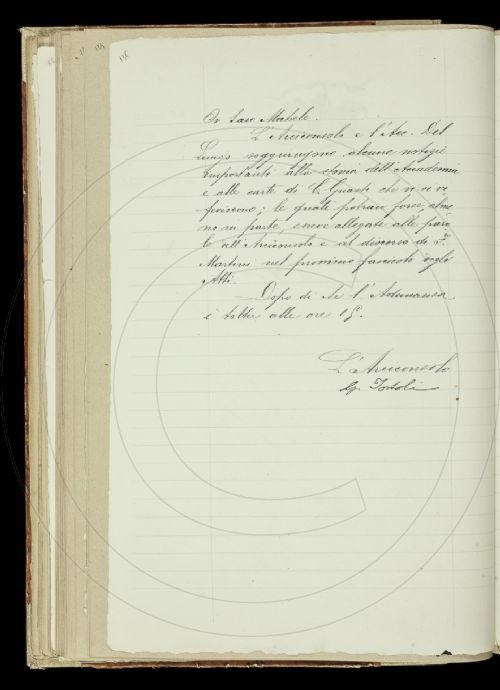 di San Michele.
L'Arciconsolo e l'Acc. Del
Lungo soggiungono alcune notizie
importanti alla storia dell'Accademia
e alle carte di C. Guasti che vi si ri
feriscono; le quali potran forse, alme
no in parte, essere allegate alle paro
le dell'Arciconsolo e al discorso di F.
Martini nel prossimo fascicolo degli
Atti.
Dopo di che l'Adunanza
è tolta alle ore 15.
L'Arciconsolo
G. Tortoli